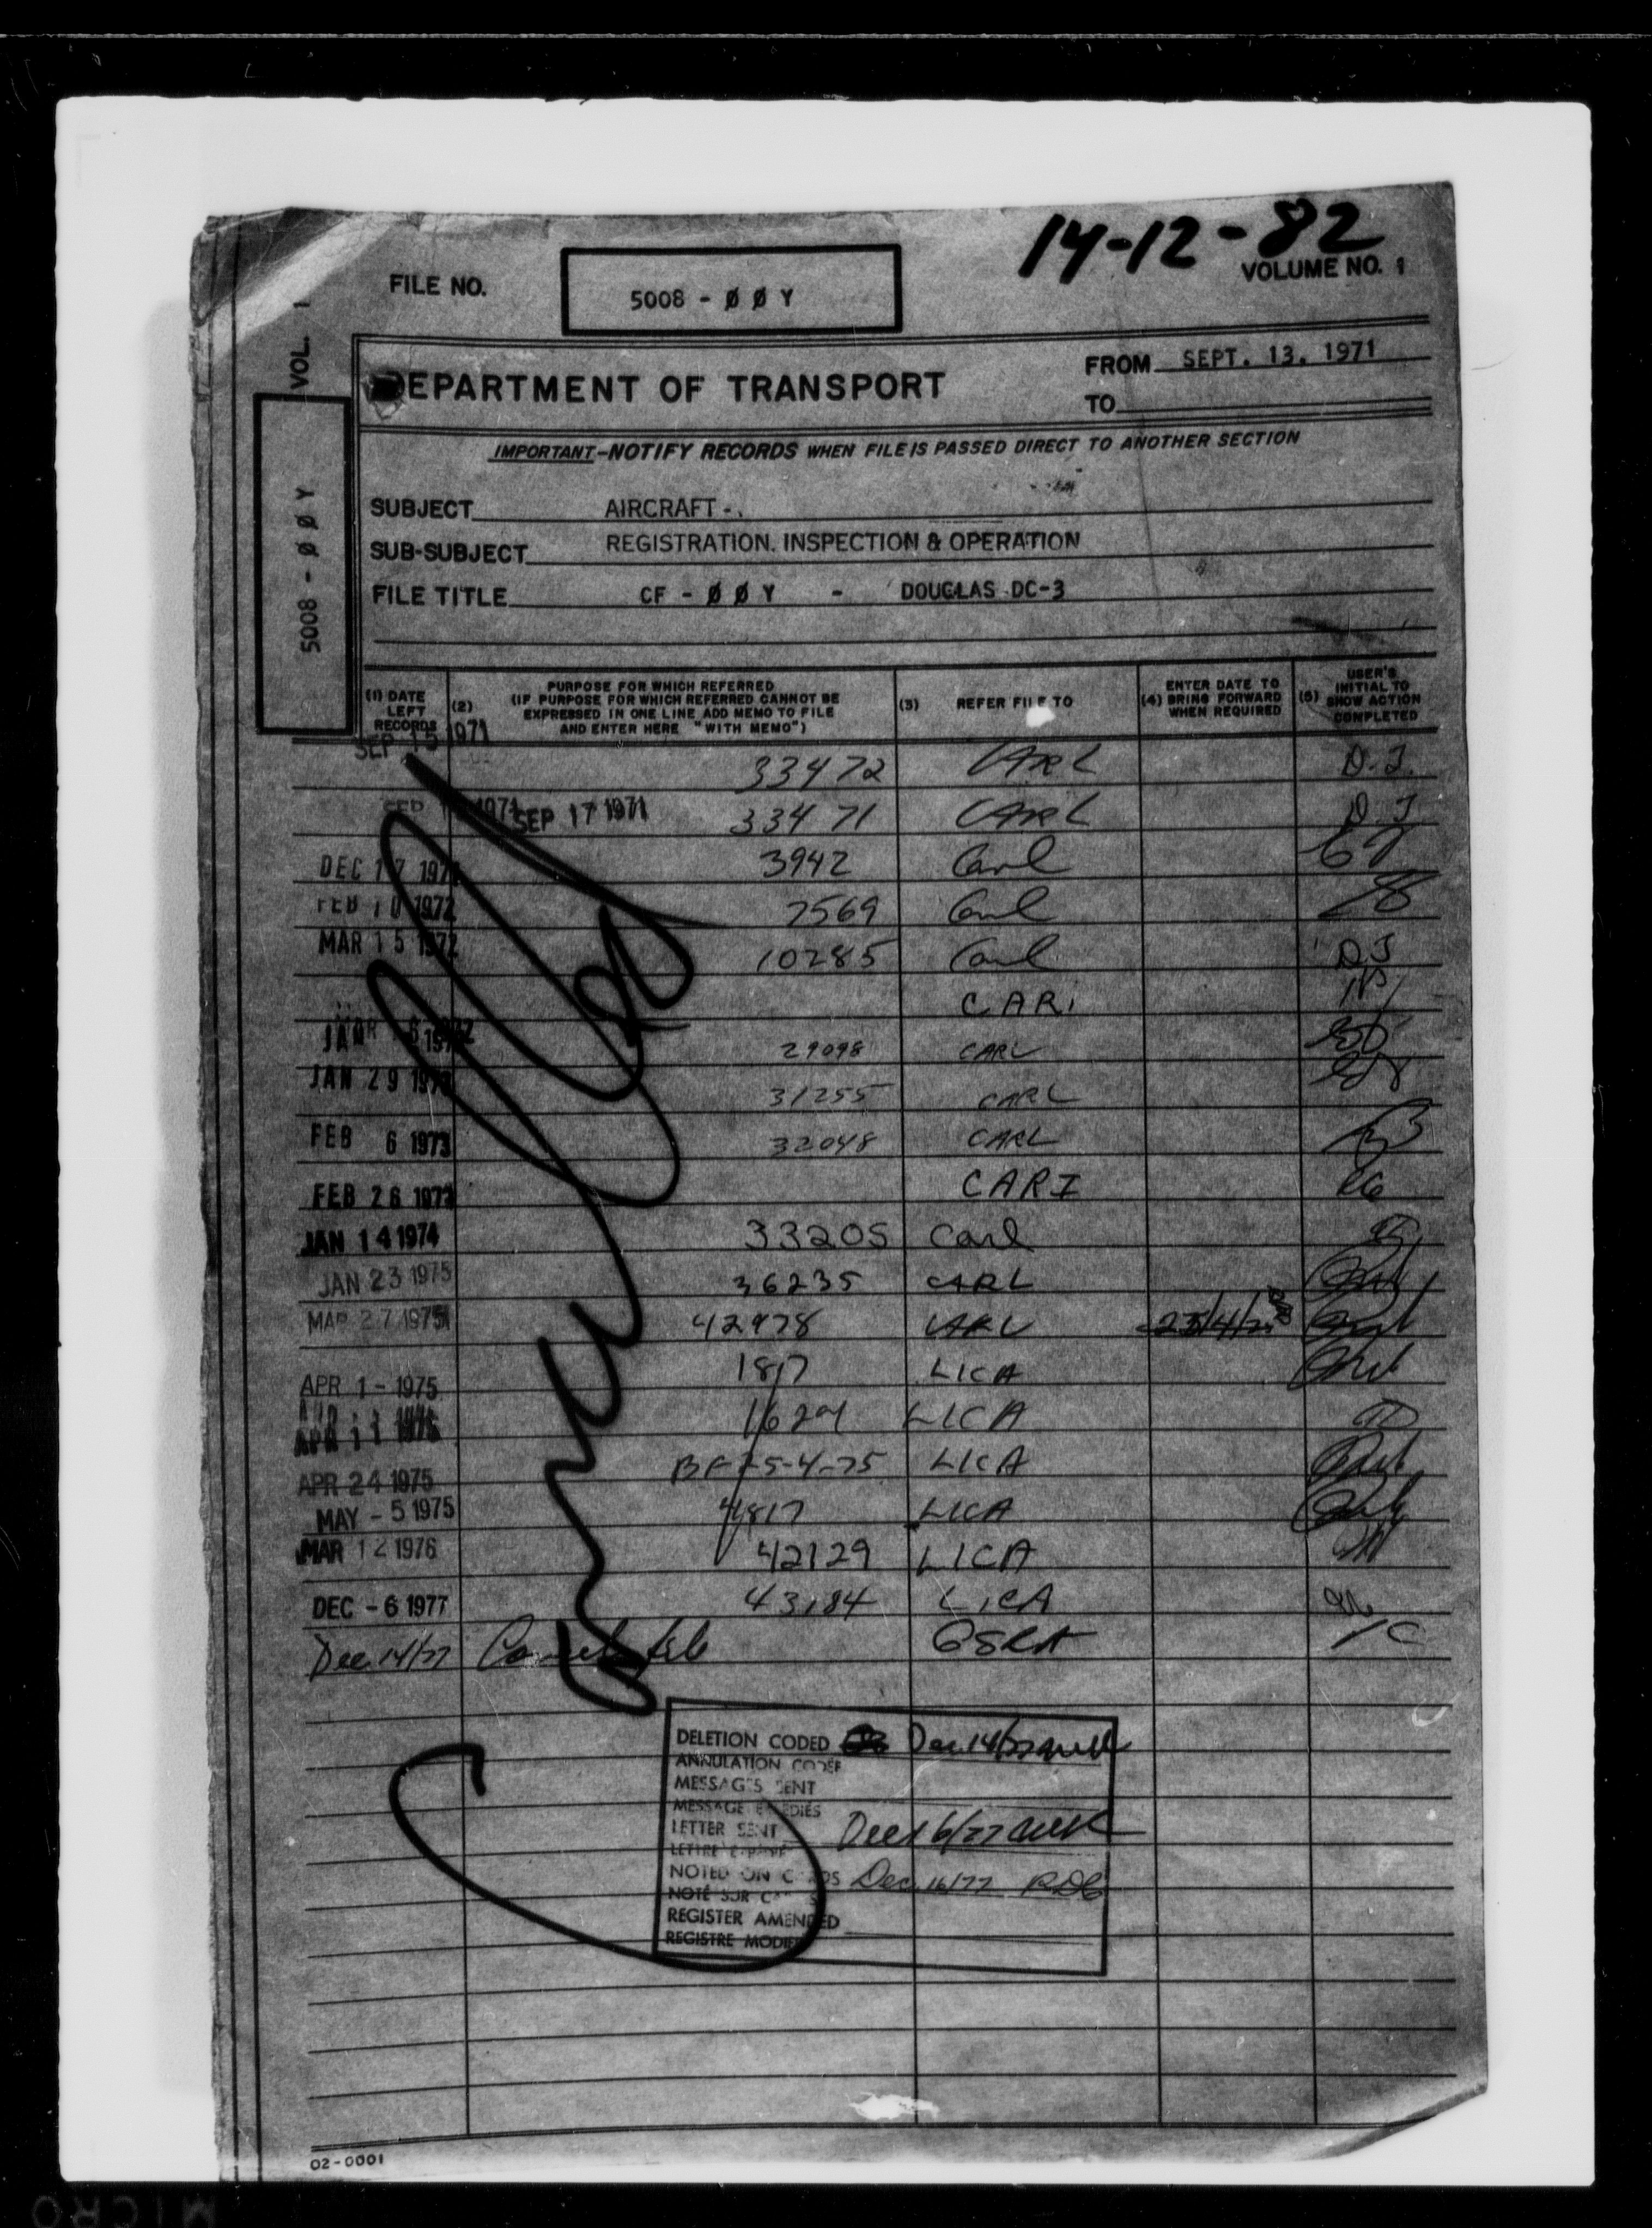 14-12-82
FILE NO. 5008 - ØØY VOLUME NO. 1
VOL. 1
5008 - ØØY
DEPARTMENT OF TRANSPORT
FROM SEPT. 13. 1971
TO
IMPORTANT-NOTIFY RECORDS WHEN FILE IS PASSED DIRECT TO ANOTHER SECTION
SUBJECT AIRCRAFT -.
SUB-SUBJECT REGISTRATION. INSPECTION & OPERATION
FILE TITLE CF - ØØY - DOUGLAS DC-3
(1) DATE LEFT RECORDS
(2) PURPOSE FOR WHICH REFERRED
(IF PURPOSE FOR WHICH REFERRED CANNOT BE
EXPRESSED IN ONE LINE ADD MEMO TO FILE
AND ENTER HERE "WITH MEMO")
(3) REFER FILE TO
(4) ENTER DATE TO BRING FORWARD WHEN REQUIRED
(5) USER'S INITIAL TO SHOW ACTION COMPLETED
SEP 15 1971 33472 CARL D.J.
SEP 17 1971 33471 CARL D.J.
DEC 17 1971 3942 Carl
FEB 10 1972 7569 Carl
MAR 15 1972 10285 Carl DJ
CARI
JAN 29098 CARL
JAN 29 1973 31255 CARL
FEB 6 1973 32048 CARL
FEB 26 1973 CARI
JAN 14 1974 33205 Carl
JAN 23 1975 36235 CARL
MAR 27 1975 42978 CARL
APR 1 - 1975 1817 LICA
APR 11 1975 LICA
APR 24 1975 BF 25-4-75 LICA
MAY - 5 1975 4817 LICA
MAR 12 1976 42129 LICA
DEC - 6 1977 43184 LICA
Dec 14/77
DELETION CODED Dec 14/77
ANNULATION CODÉE
MESSAGES SENT
MESSAGE EXPÉDIÉS
LETTER SENT Dec 16/77
LETTRE EXPÉDIÉE
NOTED ON CARDS Dec 16/77 RDB
NOTÉ SUR CARTES
REGISTER AMENDED
REGISTRE MODIFIÉ
02-0001
MICRO